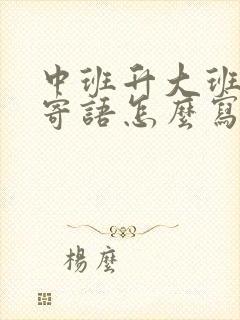 中班升大班
寄語怎麼寫
楊麼